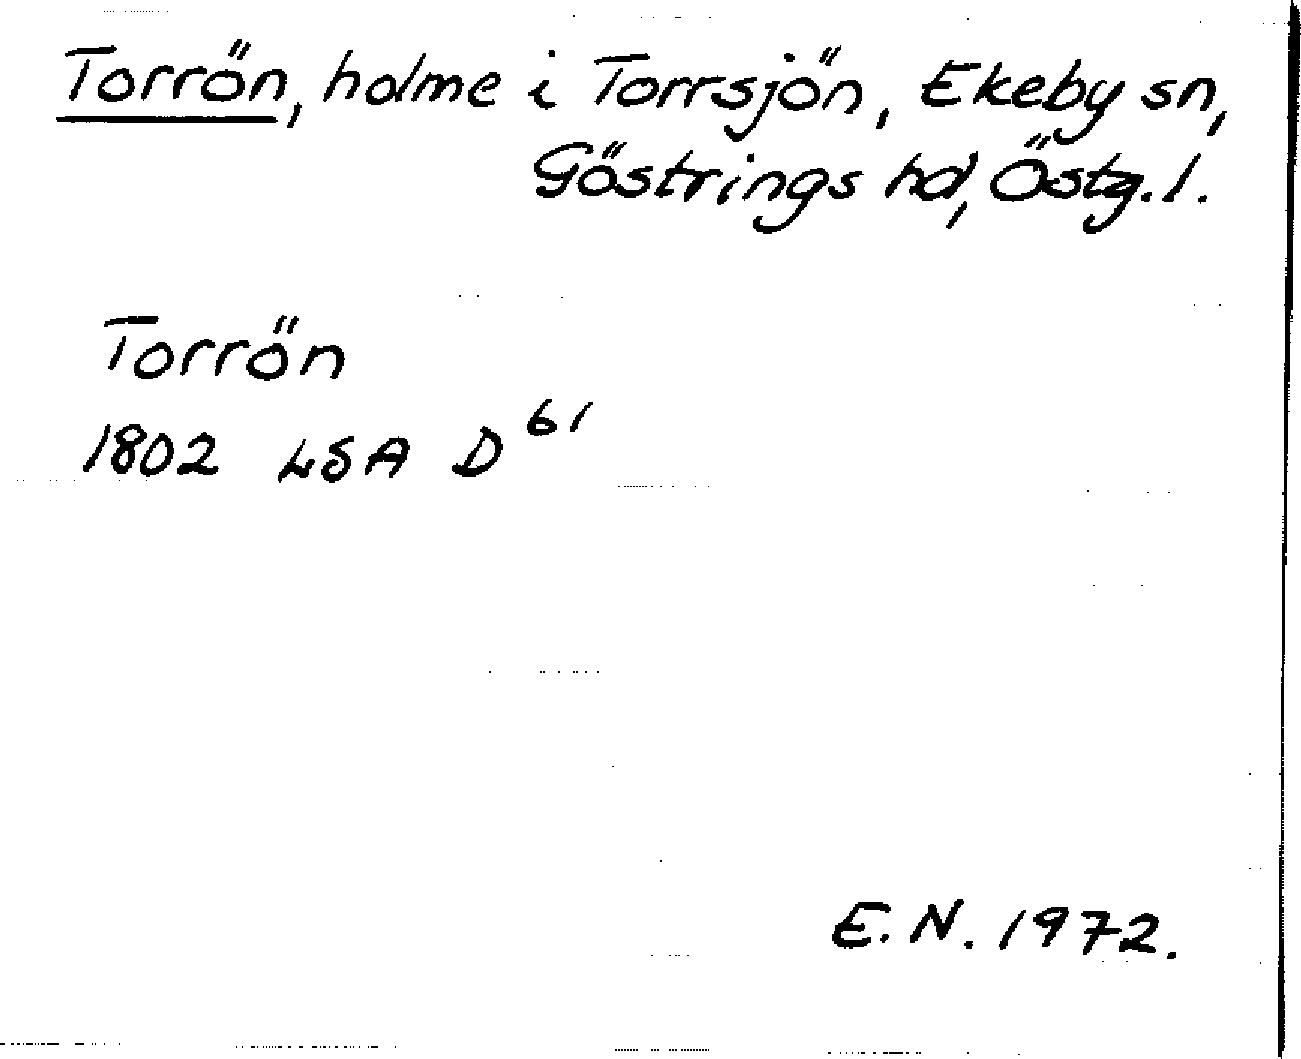 Torrön, holme i Torrsjön, Ekeby sn,
Göstrings hd, Östg.l.
Torrön
1802 LSA D 61
E.N. 1972.